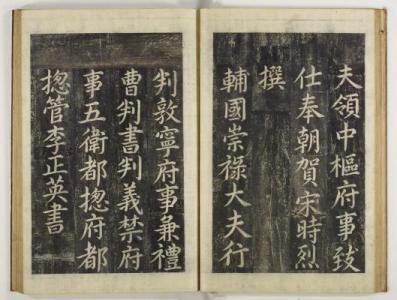 夫領中樞府事致
仕奉朝賀宋時烈
撰
輔國崇祿大夫行
判敦寧府事兼禮
曹判書判義禁府
事五衛都揔府都
揔管李正英書